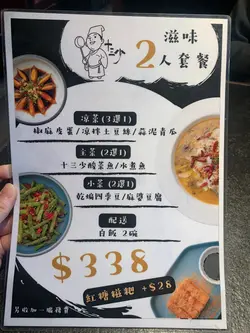 十三少
滋味
2人套餐
凉菜(3選1)
椒麻皮蛋/凉拌土豆絲/蒜泥青瓜
主菜(2選1)
十三少酸菜魚/水煮魚
小菜(2選1)
乾煸四季豆/麻婆豆腐
配送
白飯2碗
$338
紅糖糍粑 +$28
另收加一服務費